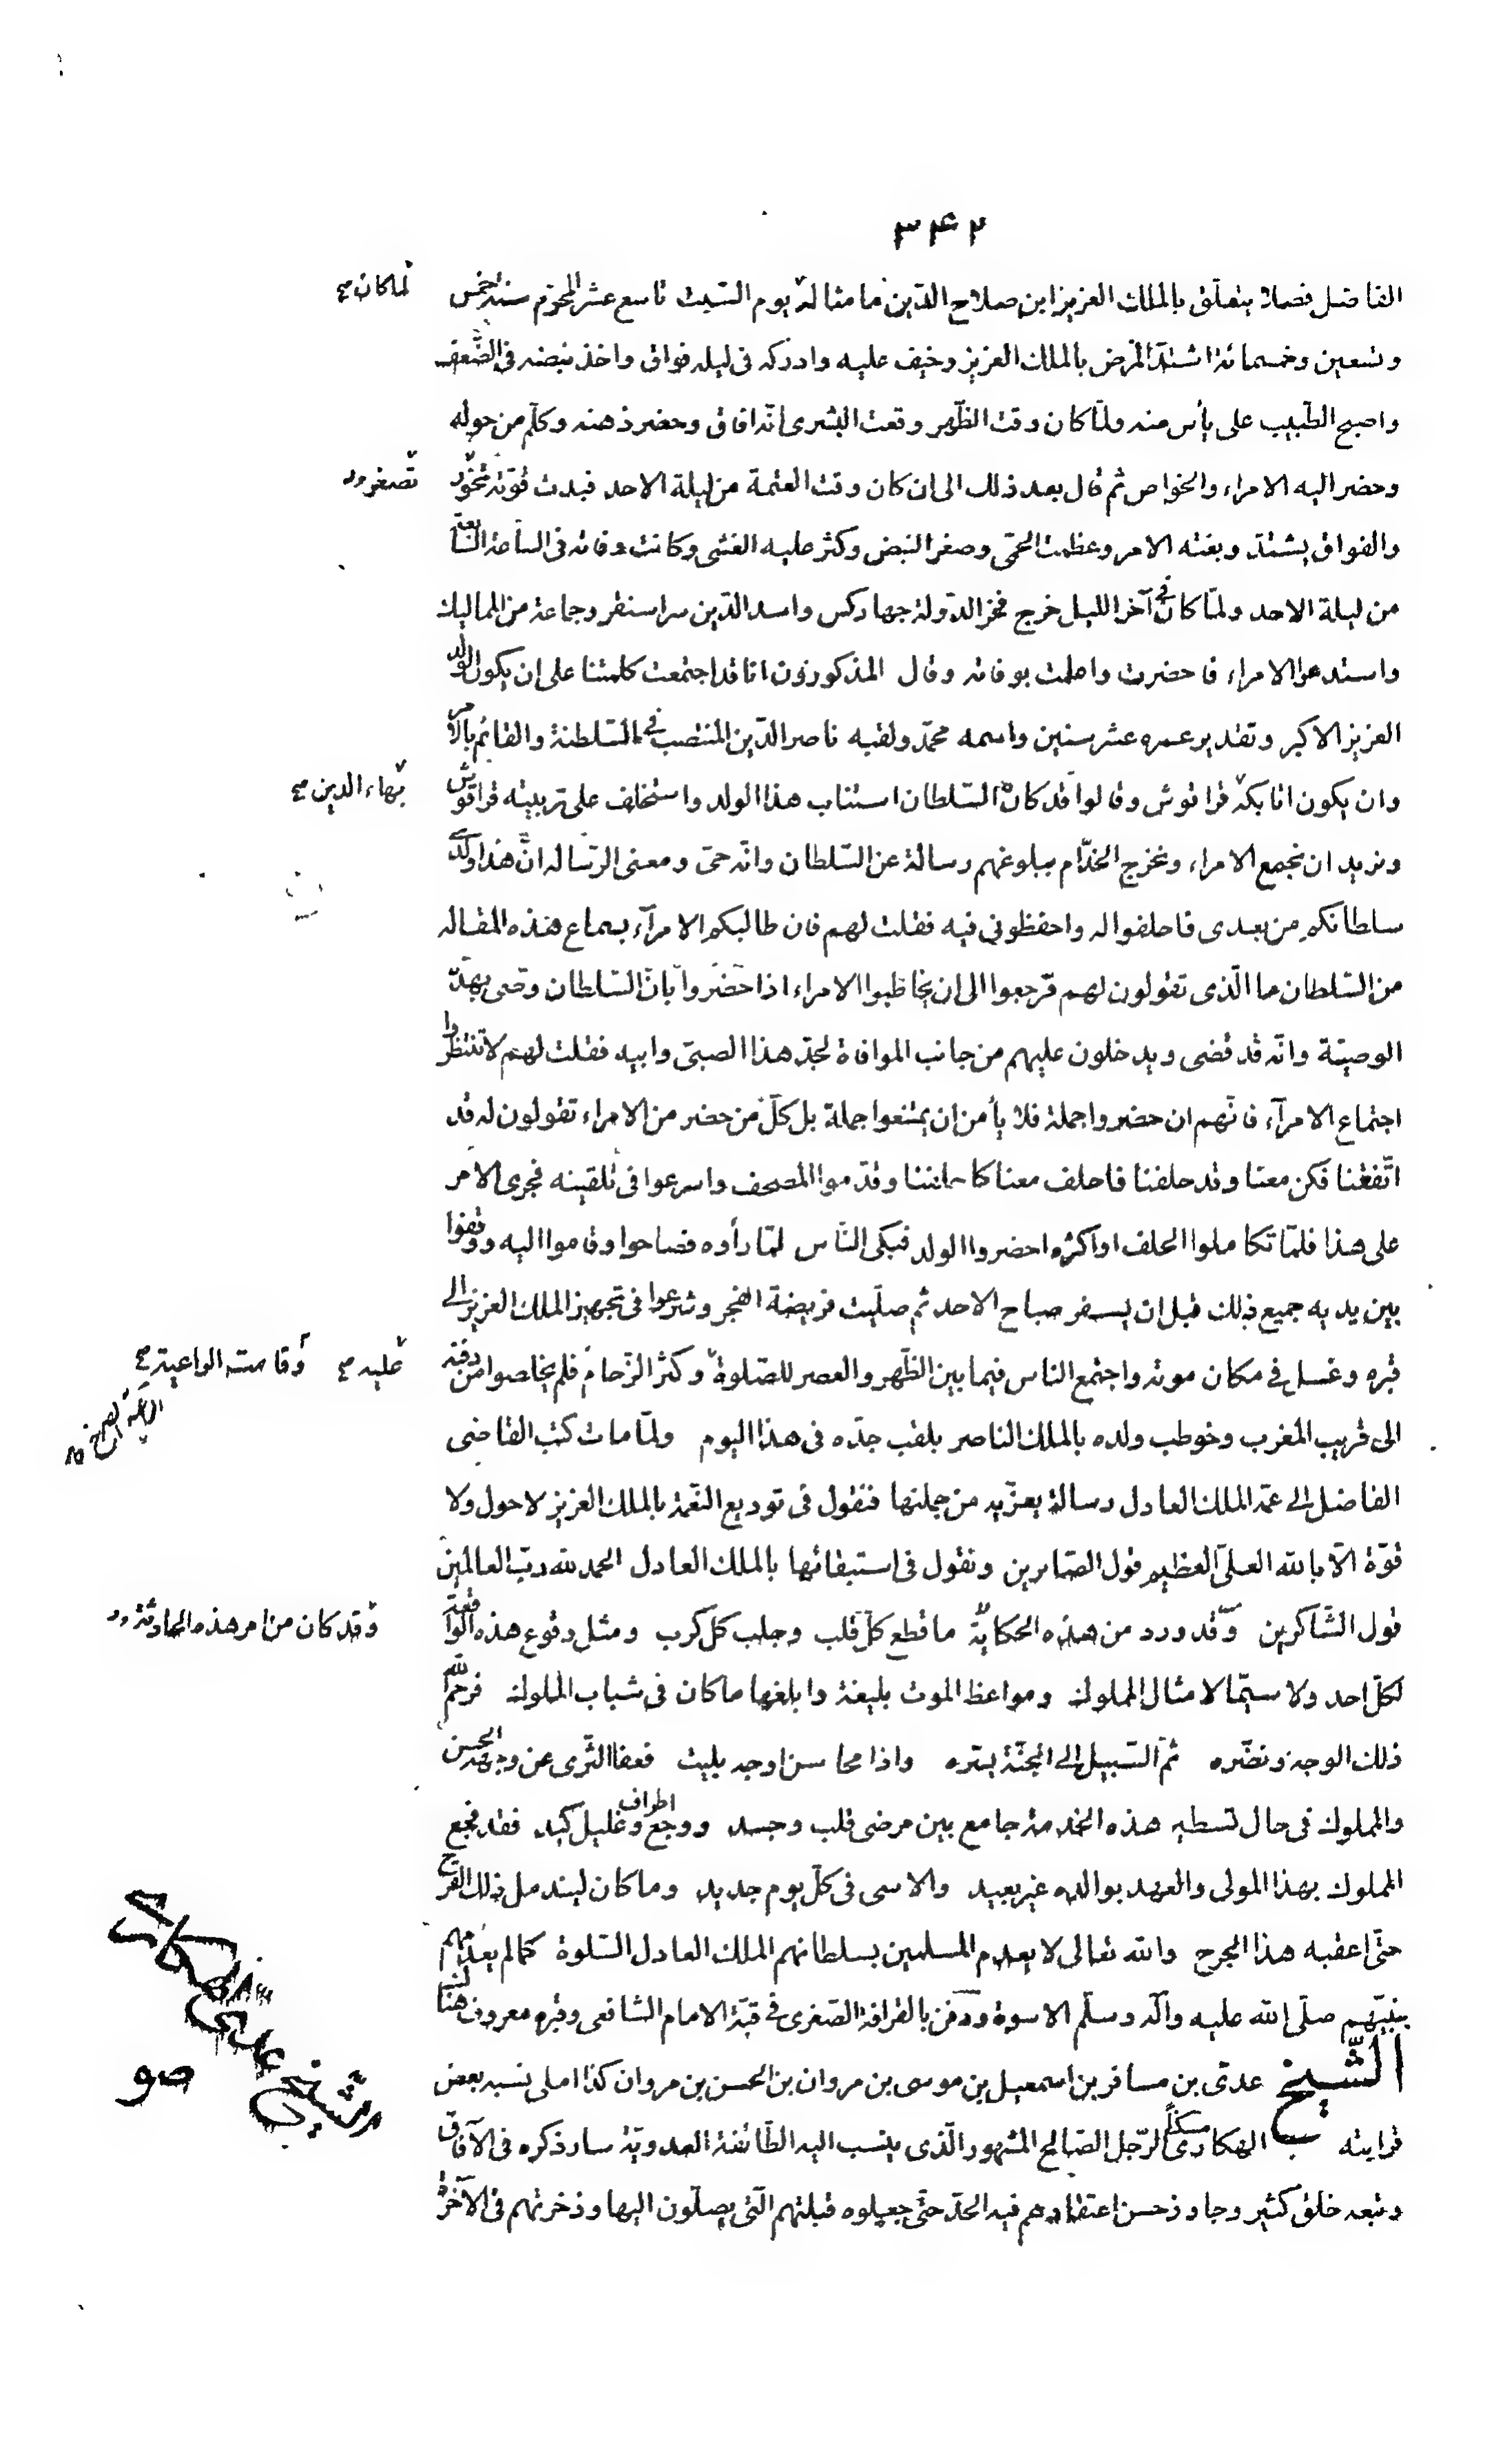 ٣۴٢
الفاضل فصلا يتعلّق بالملك العزيز ابن صلاح الدّين ما مثاله يوم السّبت تاسع عشر المحرّم سنة خمس
لماكان صح
وتسعين وخمسمائة اشتدّ المرض بالملك العزيز وخيف عليه وادركه فى ليله فواق واخذ نبضه فى الضّعف
واصبح الطّبيب على يأس منه ولمّا كان وقت الظّهر وقعت البشرى انّه افاق وحضر ذهنه وكلّم من حوله
وحضر اليه الامراء والخواص ثم قال بعد ذلك الى ان كان وقت العتمة من ليلة الاحد فبدت قوّته تخوّر
تصغر
والفواق يشتدّ وبغته الامر وعظمت الحمّى وصغر النبض وكثر عليه الغشى وكانت وفاته فى السّاعة السّابعة
من ليلة الاحد ولمّا كان فى آخر الليل خرج فخر الدّولة جهاركس واسد الدّين سراسنقر وجماعة من المماليك
واستدعوا الامراء فاحضرت واعلمت بوفاته وقال المذكورون انا قد اجتمعت كلمتنا على ان يكون الولد
العزيز الاكبر وتقدير عمره عشر سنين واسمه محمّد ولقبه ناصر الدّين المنتصب فى السّلطنة والقائم بالامر
وان يكون اتابكه قراقوش وقالوا قد كان السّلطان استناب هذا الولد واستخلف على تربيته قراقوش
بهاء الدين صح
ونريد ان نجمع الامراء ونخرج الخدّام يبلوغهم رسالة عن السّلطان وانّه حىّ ومعنى الرّساله انّ هذا ولدى
سلطانكم من بعدى فاحلفوا له واحفظونى فيه فقلت لهم فان طالبكم الامرآء بسماع هذه المقاله
من السّلطان ما الّذى تقولون لهم فرجعوا الى ان يخاطبوا الامراء اذا حضروا بانّ السّلطان وصّى بهذه
الوصيّة وانّه قد قضى ويدخلون عليهم من جانب الموافاة لجدّ هذا الصبىّ وابيه فقلت لهم لا تنتظروا
اجتماع الامرآء فانّهم ان حضروا جملة فلا يأمن ان يمتنعوا جملة بل كلّ من حضر من الامراء تقولون له قد
اتّفقنا فكن معنا وقد حلفنا فاحلف معنا كما حلفنا وقدّموا المصحف واسرعوا فى تلقينه فجرى الامر
على هذا فلمّا تكاملوا الحلف او اكثره احضروا الولد فبكى النّاس لمّا رأوه فصاحوا وقاموا اليه ووقفوا
بين يديه جميع ذلك قبل ان يسفر صباح الاحد ثم صلّيت فريضة الفجر وشرعوا فى تجهيز الملك العزيز الى
قبره وغسل فى مكان موته واجتمع الناس فيما بين الظّهر والعصر للصّلوة وكثر الزّحام فلم يخلصوا من دفنه
عليه صح
وقامت الواعية صح
الى قريب المغرب وخوطب ولده بالملك الناصر بلقب جدّه فى هذا اليوم ولمّا مات كتب القاضى
الفاضل الى عمّه الملك العادل رسالة يعزّيه من جملتها فنقول فى توديع النّعمة بالملك العزيز لا حول ولا
قوّة الّا بالله العلىّ العظيم قول الصّابرين ونقول فى استبقائها بالملك العادل الحمد لله ربّ العالمين
قول الشّاكرين وقد ورد من هذه الحكاية ما قطع كلّ قلب وجلب كلّ كرب ومثل وقوع هذه الواقعة
وقد كان من امر هذه الحادثة
لكلّ احد ولا سيّما لامثال المملوك ومواعظ الموت بليغة وابلغها ما كان فى شباب الملوك فرحم الله
ذلك الوجه ونضّره ثمّ السّبيل الى الجنّة يسّره واذا محاسن اوجه بليت فعفا الثّرى عن وجهه الحسن
والمملوك فى حال تسطيه هذه الخدمة جامع بين مرضى قلب وجسد ووجع اطراف وغليل كبد فقد فجع
المملوك بهذا المولى والعهد بوالده غير بعيد والاسى فى كلّ يوم جديد وما كان ليندمل ذلك القرح
حتّى اعقبه هذا الجرح والله تعالى لا يعدم المسلمين بسلطانهم الملك العادل السّلوة كما لم يعدّمهم
بنبيّهم صلّى الله عليه وآله وسلّم الاسوة ودفن بالقرافة الصّغرى فى قبّة الامام الشافعى وقبره معروف هناك
الشّيخ عدىّ بن مسافر بن اسمعيل بن موسى بن مروان بن الحسن بن مروان كذا املى نسبه بعض
الشّيخ عدى الهكارى
قرابته الهكارى مسكنًا الرّجل الصّالح المشهور الّذى ينسب اليه الطّائفة العدويّة سار ذكره فى الآفاق
وتبعه خلق كثير وجاوز حسن اعتقادهم فيه الحدّ حتّى جعلوه قبلتهم الّتى يصلّون اليها وذخرتهم فى الآخرة